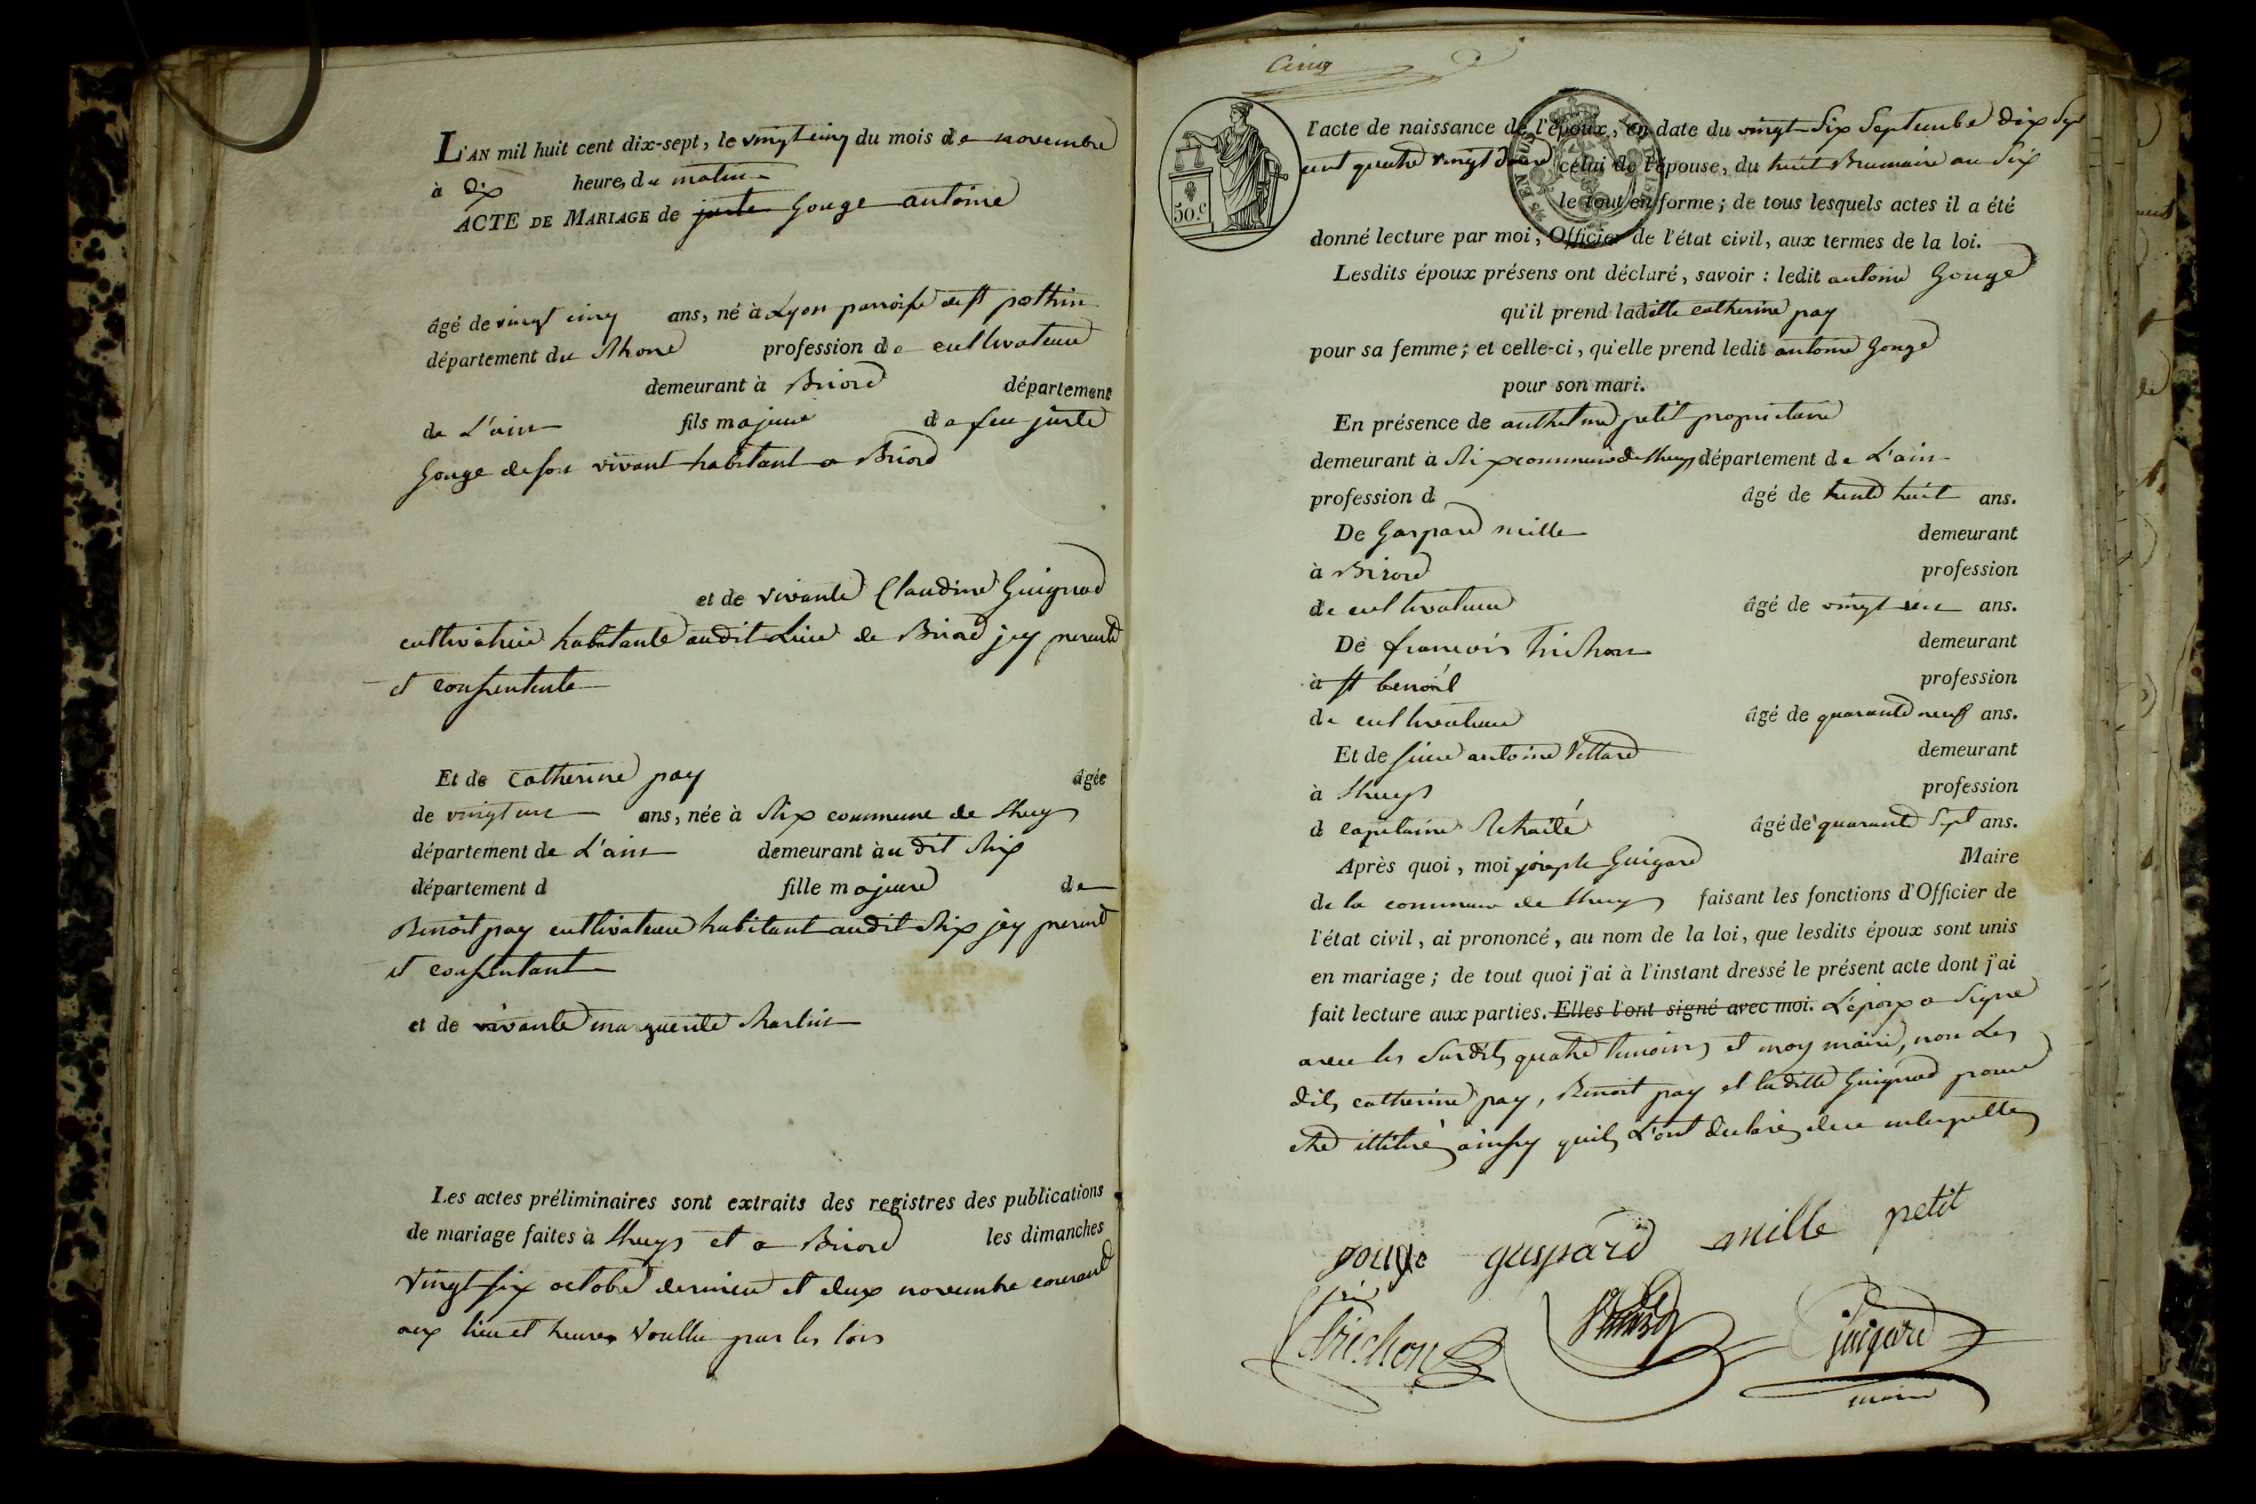 L'AN mil huit cent dix-sept, le vingt cinq du mois de novembre
à dix heures du matin
ACTE DE MARIAGE de juste Gouge antoine
âgé de vingt cinq ans, né à Lyon parroisse de st pothin
département du Rhone profession de cultivateur
demeurant à Briord département
de L'ain fils majeur de feu juste
Gouge de son vivant habitant a Briord
et de vivante Claudine Guignod
cultivatrice habitante audit Lieu de Briord jcy presente
et consentente
Et de Catherine pay âgée
de vingt un ans, née à Rix commune de Lhuys
département de L'ain demeurant àu dit Rix
département d fille majeure de
Benoit pay cultivateur habitant audit Rix jcy present
et consentant
et de vivante marguerite Martin
Les actes préliminaires sont extraits des registres des publications
de mariage faites à Lhuys et a Briord les dimanches
vingt six octobre dernier et deux novembre courant
aux lieu et heures voullu par les lois
Cinq
50.c
l'acte de naissance de l'époux, en date du vingt Six Septembre dix Sept
cent quatre vingt douze celui de l'épouse, du huit Brumaire an Six
le tout en forme; de tous lesquels actes il a été
donné lecture par moi, Officier de l'état civil, aux termes de la loi.
Lesdits époux présens ont déclaré, savoir : ledit antoine Gouge
qu'il prend laditte catherine pay
pour sa femme; et celle-ci, qu'elle prend ledit antoine Gouge
pour son mari.
En présence de anthelme petit proprietaire
demeurant à Rix commune de Lhuys département de L'ain
profession d âgé de trente huit ans.
De Gaspard mille demeurant
à Briord profession
de cultivateur âgé de vingt ans.
De françois trichon demeurant
à st benoit profession
de cultivateur âgé de quarante neuf ans.
Et de Sieur antoine Vettard demeurant
à Lhuys profession
d Capitaine Retraité âgé de quarante Sept ans.
Après quoi, moi joseph Guigard Maire
de la commune de Lhuys faisant les fonctions d'Officier de
l'état civil, ai prononcé, au nom de la loi, que lesdits époux sont unis
en mariage; de tout quoi j'ai à l'instant dressé le présent acte dont j'ai
fait lecture aux parties. Elles l'ont signé avec moi. L'époux a Signé
avec les Susdits quatre temoins et moy maire, non Les
dits catherine pay, Benoit pay et laditte Guignod pour
etre illitiré ainsy quils L'ont declaré de ce interpellés
gouge gaspard mille petit
trichon Guigard
maire